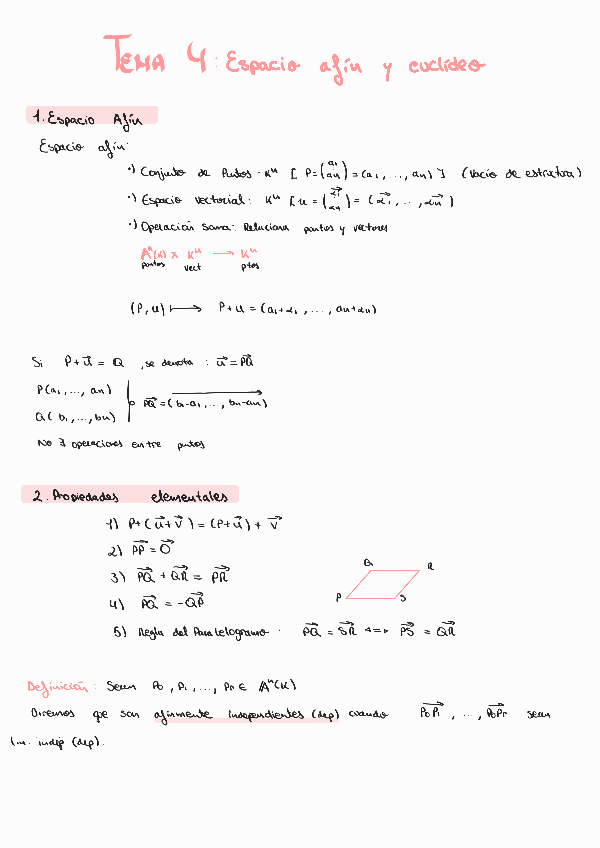 TEMA 4: Espacio afín y euclídeo
1. Espacio Afín
Espacio afín:
·) Conjunto de Puntos: Kⁿ [ P = (a₁ ⋮ aₙ) = (a₁, ..., aₙ) ] (Vacío de estructura)
·) Espacio Vectorial: Kⁿ [ u = (α₁ ⋮ αₙ) = (α₁, ..., αₙ) ]
·) Operación suma: Relaciona puntos y vectores
Aⁿ(K) x Kⁿ → Kⁿ
puntos vect ptos
(P, u) ⟼ P+u = (a₁+α₁, ..., aₙ+αₙ)
Si P+u⃗ = Q, se denota: u⃗ = PQ⃗
P(a₁, ..., aₙ)
Q(b₁, ..., bₙ)
PQ⃗ = (b₁-a₁, ..., bₙ-aₙ)
No ∃ operaciones entre puntos
2. Propiedades elementales
1) P+(u⃗+v⃗) = (P+u⃗) + v⃗
2) PP⃗ = O⃗
3) PQ⃗ + QR⃗ = PR⃗
4) PQ⃗ = -QP⃗
Q R
P S
5) Regla del Paralelogramo: PQ⃗ = SR⃗ <=> PS⃗ = QR⃗
Definición: Sean P₀, P₁, ..., Pr ∈ Aⁿ(K)
Diremos que son afinmente independientes (dep) cuando P₀P₁⃗, ..., P₀Pr⃗ sean
lin. indep (dep).